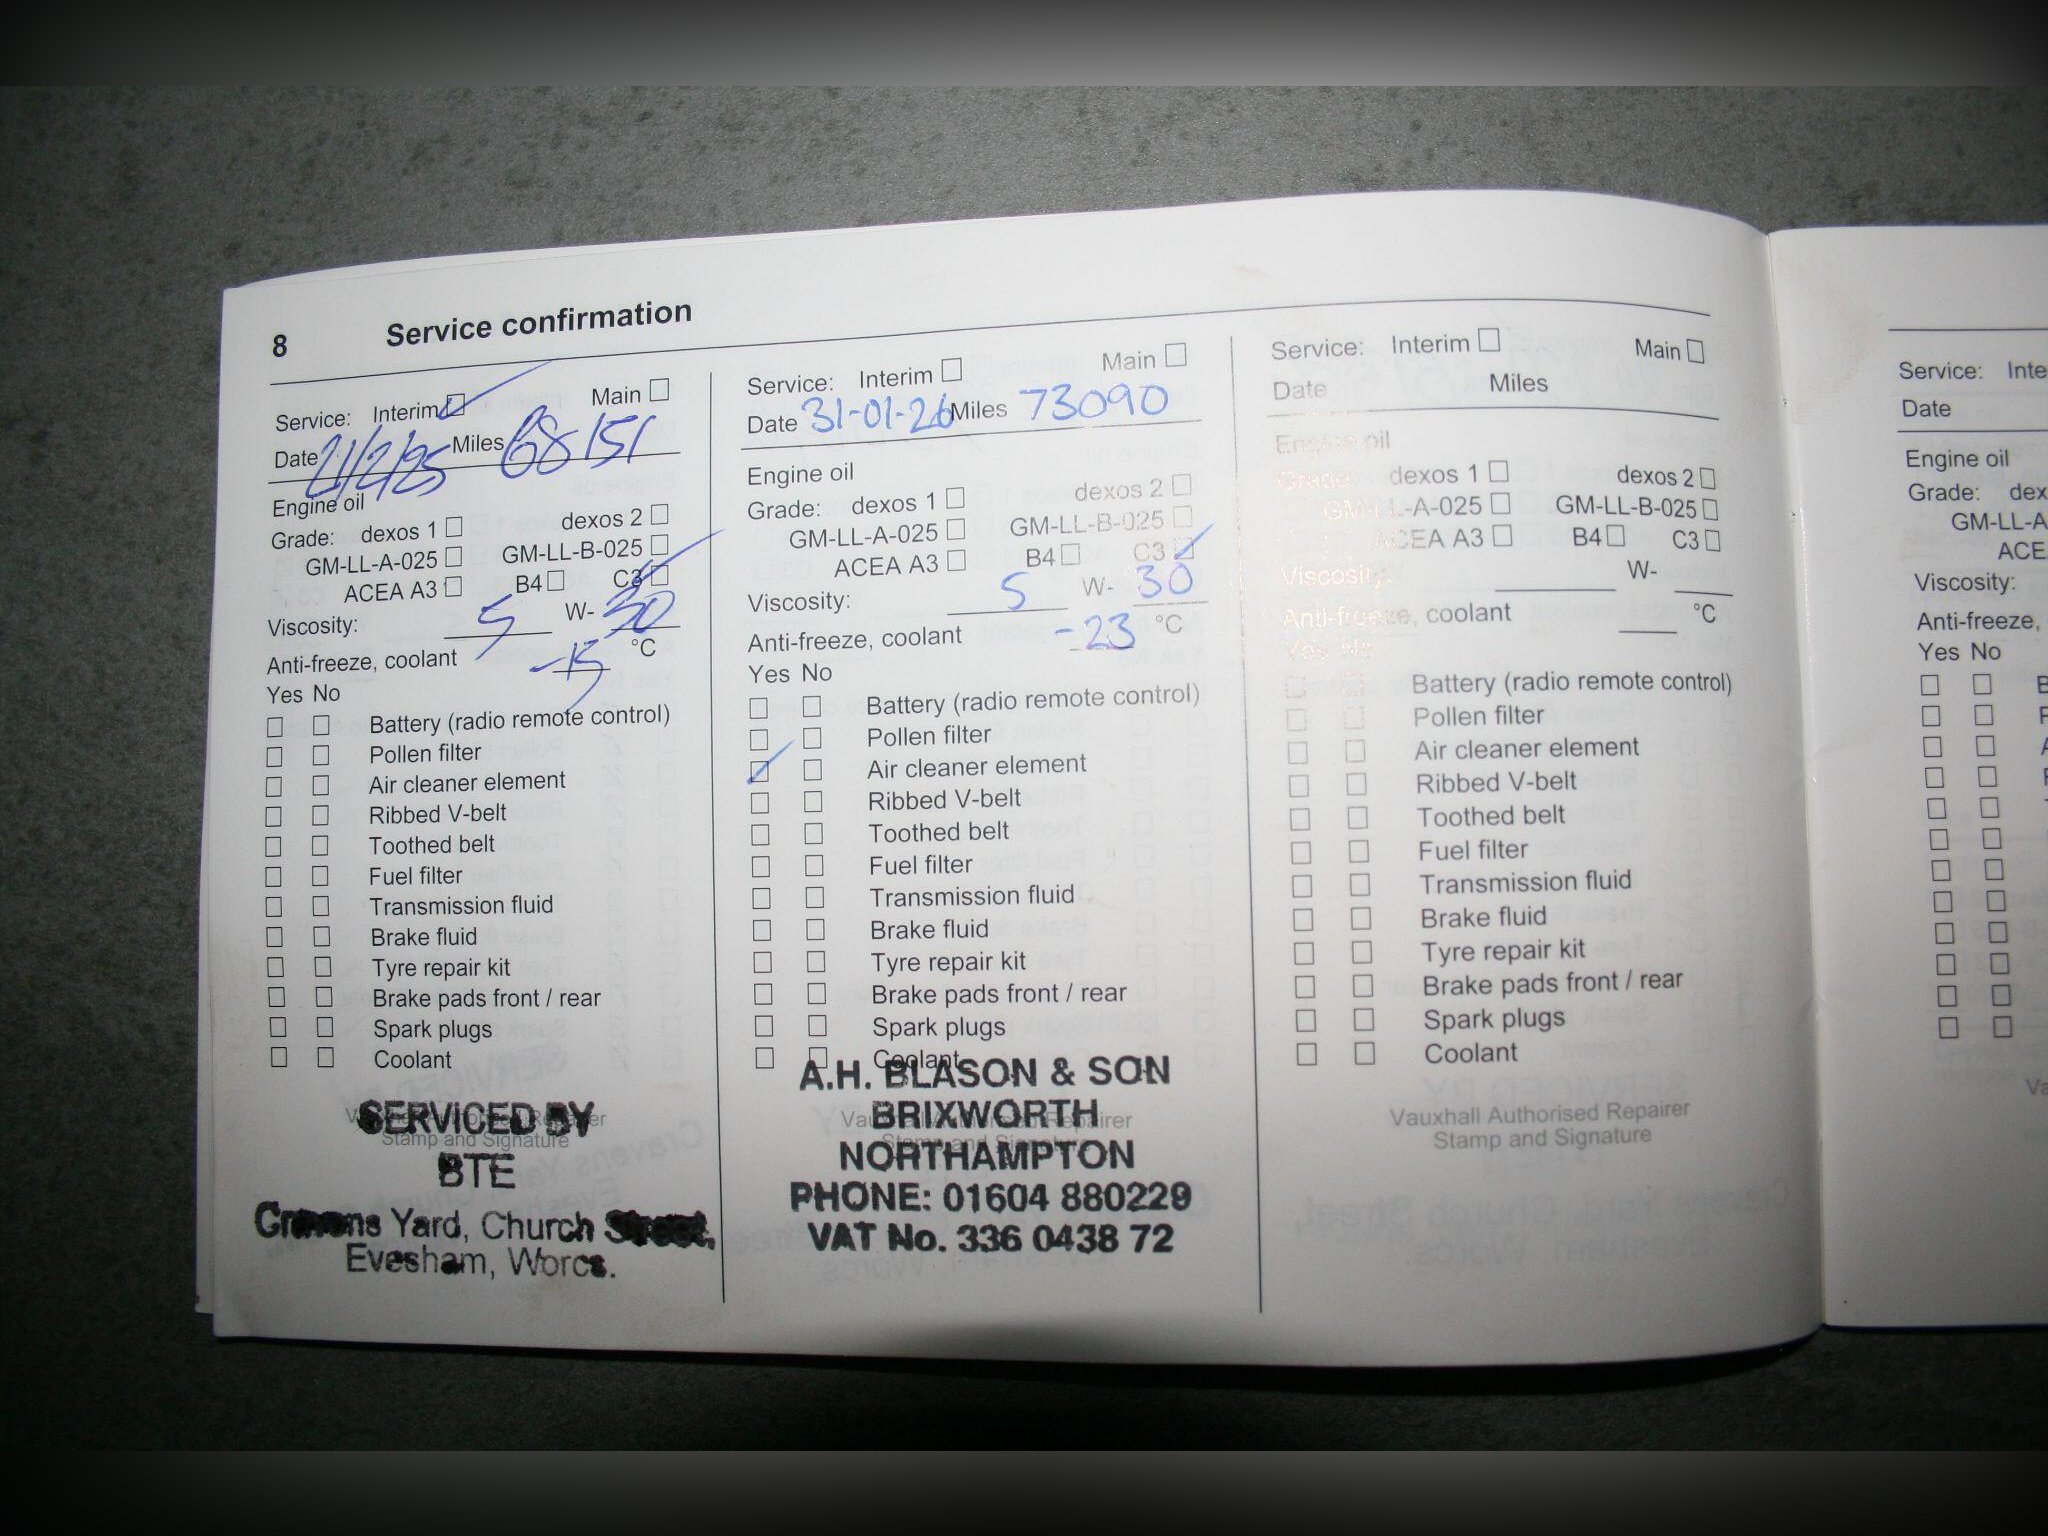 8 Service confirmation
Service: Interim Main
Date 21/2/25 Miles 68151
Engine oil
Grade: dexos 1 dexos 2
GM-LL-A-025 GM-LL-B-025
ACEA A3 B4 C3
Viscosity: 5 W- 30
Anti-freeze, coolant -15 °C
Yes No
Battery (radio remote control)
Pollen filter
Air cleaner element
Ribbed V-belt
Toothed belt
Fuel filter
Transmission fluid
Brake fluid
Tyre repair kit
Brake pads front / rear
Spark plugs
Coolant
Vauxhall Authorised Repairer
Stamp and Signature
SERVICED BY
BTE
Cravens Yard, Church Street,
Evesham, Worcs.
Service: Interim Main
Date 31-01-26 Miles 73090
Engine oil
Grade: dexos 1 dexos 2
GM-LL-A-025 GM-LL-B-025
ACEA A3 B4 C3
Viscosity: 5 W- 30
Anti-freeze, coolant -23 °C
Yes No
Battery (radio remote control)
Pollen filter
Air cleaner element
Ribbed V-belt
Toothed belt
Fuel filter
Transmission fluid
Brake fluid
Tyre repair kit
Brake pads front / rear
Spark plugs
Coolant
Vauxhall Authorised Repairer
Stamp and Signature
A.H. BLASON & SON
BRIXWORTH
NORTHAMPTON
PHONE: 01604 880229
VAT No. 336 0438 72
Service: Interim Main
Date Miles
Engine oil
Grade: dexos 1 dexos 2
GM-LL-A-025 GM-LL-B-025
ACEA A3 B4 C3
Viscosity: W-
Anti-freeze, coolant °C
Yes No
Battery (radio remote control)
Pollen filter
Air cleaner element
Ribbed V-belt
Toothed belt
Fuel filter
Transmission fluid
Brake fluid
Tyre repair kit
Brake pads front / rear
Spark plugs
Coolant
Vauxhall Authorised Repairer
Stamp and Signature
Service:
Date
Engine oil
Grade:
Viscosity:
Anti-freeze,
Yes No